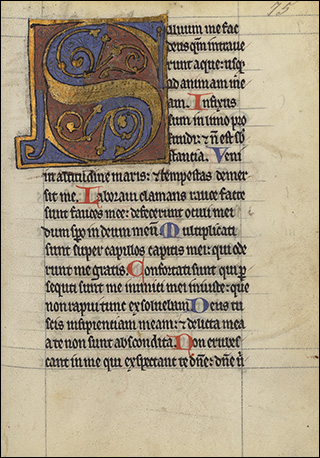 75
Saluum me fac
deus qm̄ intraue
runt aque: usq
ad animam me
am. Infixus
sum in limo pro
fundi: & n̄ est sb
stantia. Veni
in altitudine maris: & tempestas demer
sit me. Laboraui clamans rauce facte
sunt fauces mee: defecerunt oculi mei
dum sp̄o in deum meū. Multiplicati
sunt super capillos capitis mei: qui ode
runt me gratis. Confortati sunt qui p̄
sequti sunt me inimici mei iniuste: que
non rapui tunc exsoluebam. Deus tu
scis insipientiam meam: & delicta mea
a te non sunt absconditā. Non erubes
cant in me qui exspectant te dn̄e: dn̄e ū